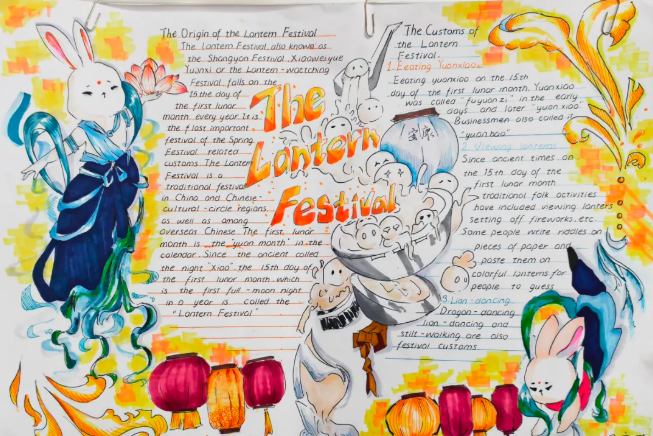 The Origin of the Lantern Festival
The Lantern Festival, also known as
the Shangyan Festival, Xiaoweiyue
Yuanxi or the Lantern-watching
Festival falls on the
15 the day of
the first lunar
month every year. It is
the last important
festival of the Spring
Festival related
customs. The Lantern
Festival is a
traditional festival
in China and Chinese-
cultural-circle regions,
as well as among
overseas Chinese. The first lunar
month is the "yuan month" in the
calendar. Since the ancient called
the night "Xiao", the 15th day of
the first lunar month which
is the first full-moon night
in a year is called the
"Lantern Festival"
The
Lantern
Festival
The Customs of
the Lantern
Festival.
1. Eeating Yuanxiao
Eeating yuanxiao on the 15th
day of the first lunar month. Yuanxiao
was called "fuyuanzi" in the early
days and later "yuan xiao"
Businessmen also called it
"yuan bao"
2. Viewing lanterns
Since ancient times on
the 15th day of the
first lunar month
traditional folk activities
have included viewing lanterns
setting off fireworks. etc
Some people write riddles on
pieces of paper and
paste them on
colorful lanterns for
people to guess
3. Lian-dancing
Dragon-dancing
lian-dancing and
stilt-walking are also
festival customs.